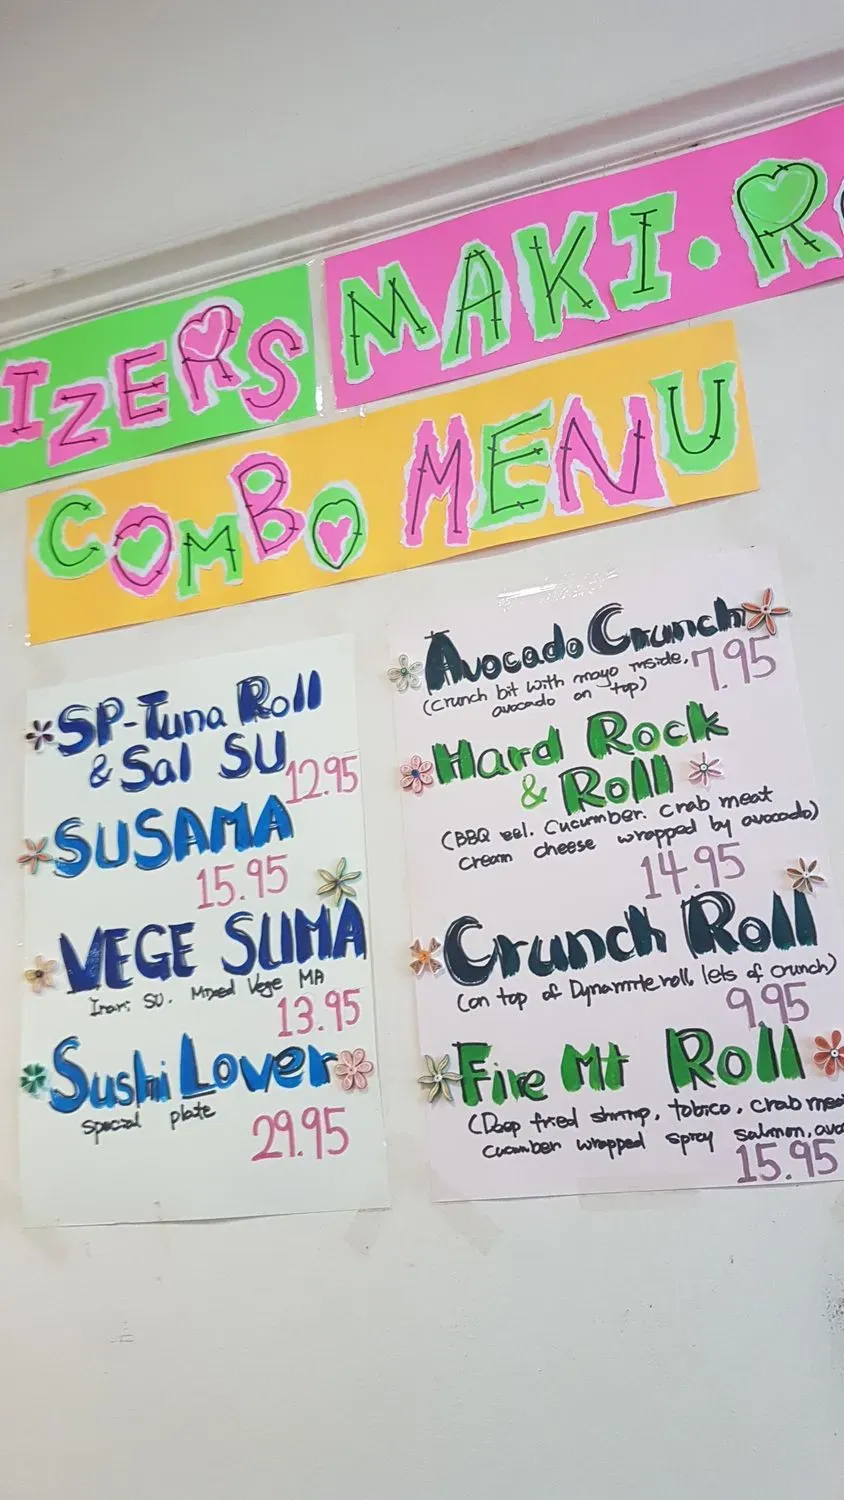 IZERS
MAKI·R
COMBO MENU
SP-Tuna Roll
& Sal SU
12.95
SUSAMA
15.95
VEGE SUMA
Inari SU. Mixed Vege MA
13.95
Sushi Lover
special plate
29.95
Avocado Crunch
7.95
(Crunch bit with mayo inside,
avocado on top)
Hard Rock
& Roll
(BBQ eel. Cucumber. Crab meat
cream cheese wrapped by avocado)
14.95
Crunch Roll
(on top of Dynamite roll, lets of crunch)
9.95
Fire Mt Roll
(Deep fried shrimp, tobico, crab mea
cucumber wrapped spicy salmon, avo
15.95